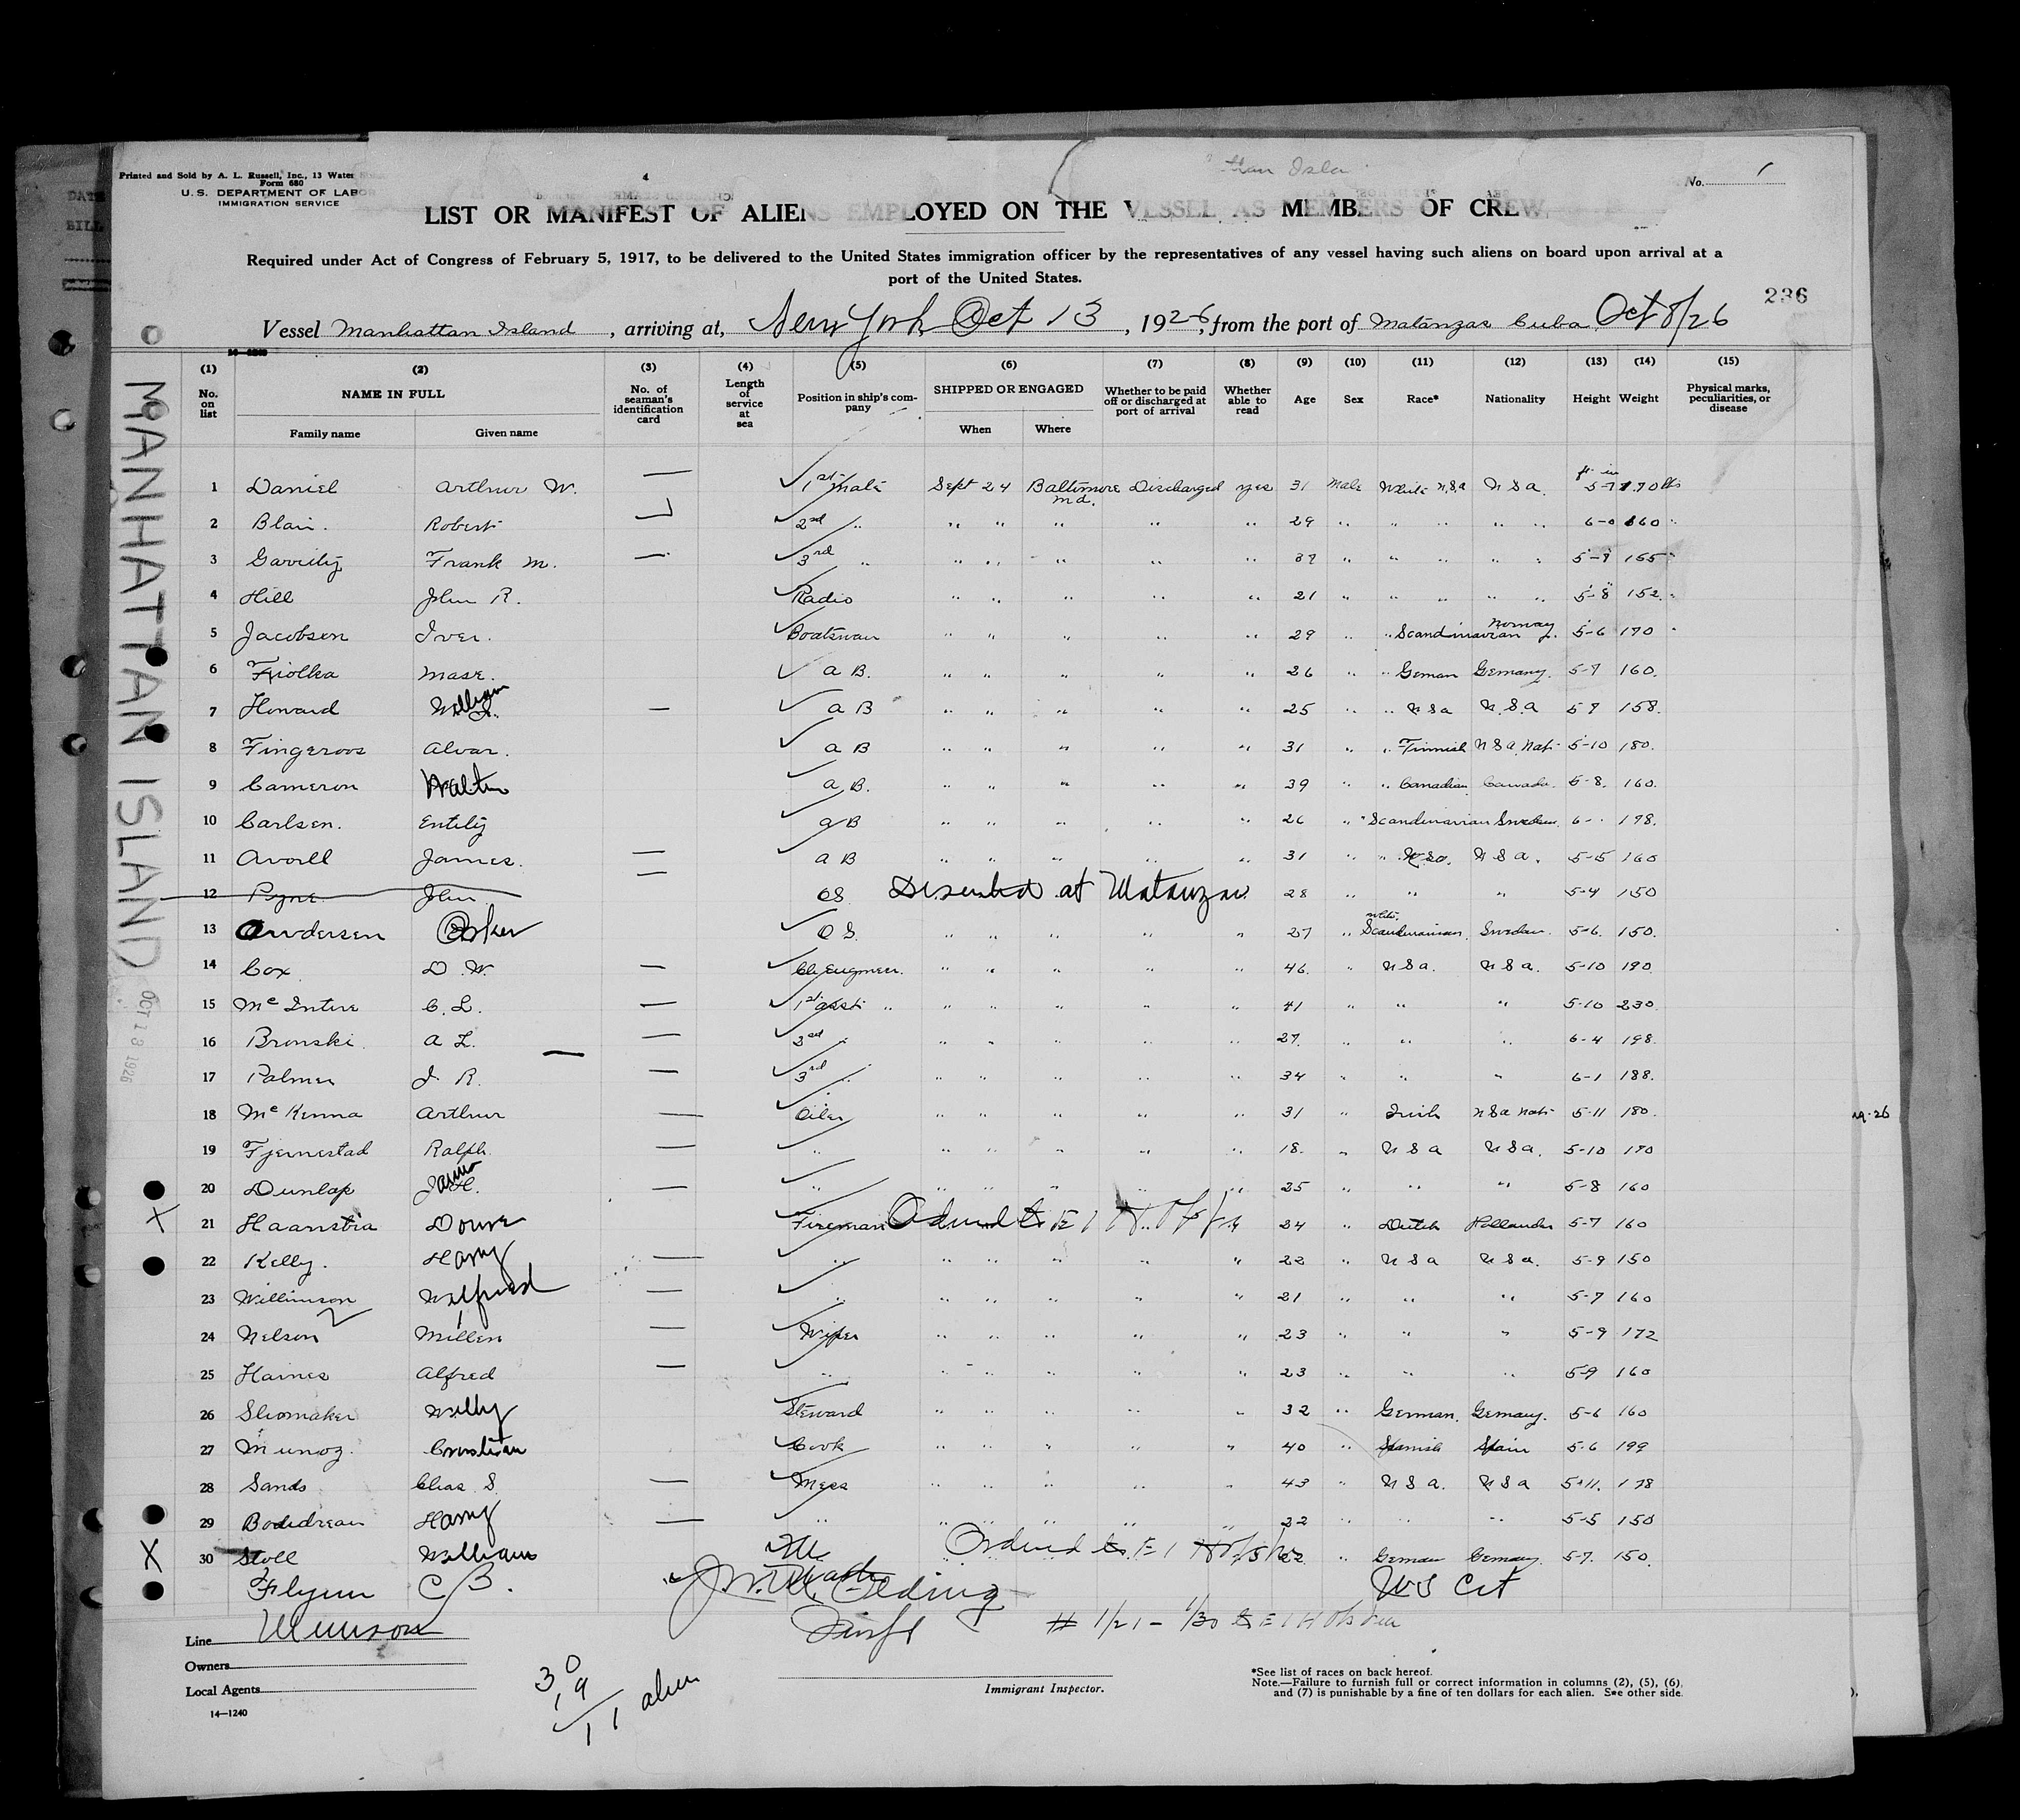 Printed and Sold by A. L. Russell, Inc., 13 Water
Form 680
U. S. DEPARTMENT OF LABOR
IMMIGRATION SERVICE
No. 1
LIST OR MANIFEST OF ALIENS EMPLOYED ON THE VESSEL AS MEMBERS OF CREW
Required under Act of Congress of February 5, 1917, to be delivered to the United States immigration officer by the representatives of any vessel having such aliens on board upon arrival at a
port of the United States.
236
Vessel Manhattan Island, arriving at, New York Oct 13, 1926, from the port of Matanzas Cuba Oct 8/26
MANHATTAN ISLAND OCT 13 1926
(1) No. on list
(2) NAME IN FULL Family name Given name
(3) No. of seaman's identification card
(4) Length of service at sea
(5) Position in ship's company
(6) SHIPPED OR ENGAGED When Where
(7) Whether to be paid off or discharged at port of arrival
(8) Whether able to read
(9) Age
(10) Sex
(11) Race*
(12) Nationality
(13) Height
(14) Weight
(15) Physical marks, peculiarities, or disease
1 Daniel Arthur W. — 1st Mate Sept 24 Baltimore Md. Discharged yes 31 Male White U.S.A U S A. 5-7 170 lbs
2 Blair. Robert 2nd " " " " " " 29 " " " " " 6-0 160
3 Garrity Frank M. — 3rd " " " " " " " " " " " 155
4 Hill John R. Radio " " " " " 21 " " " " " 5-8 152
5 Jacobsen Iver. Boatswan " " " " " 29 " " Scandinavian Norway. 5-6 170
6 Fiolka A B. " " " " " 26 " " German Germany. 5-7 160.
7 Howard William — A B " " " " " 25 " " U S A U.S.A 5 7 158.
8 Fingeroos Alvar. A B " " " " " 31 " " Finnish U S A Nat. 5-10 180.
9 Cameron Walter A B. " " " " " 39 " " Canadian Canada. 5-8. 160.
10 Carlsen. A B " " " " " 26 " " Scandinavian Sweden. 6- 178.
11 Averill James. — A B " " " " " 31 " " U S A. U S A. 5-5 160
12 Pyne John — OS Deserted at Matanzas 28 " " " 5-4 150
13 Andersen Oskar O S. " " " " " 27 " White. Scandinavian. Sweden. 5-6. 150.
14 Cox D. W. — Ch Engineer. " " " " " 46. " U S A. U S A. 5-10 190
15 McIntire C. L. — 1st Asst " " " " " " 41 " " " 5-10 230.
16 Bronski A L. — " " " " " " 27. " " " 6-4 198.
17 Palmer J. R. — 3rd " " " " " " 34 " " " 6-1 188.
18 McKenna Arthur — Oiler " " " " " 31 " Irish U S A Nat 5-11 180.
19 Fjernestad Ralph — " " " " " " 18. " U S A U S A. 5-10 170
20 Dunlap James — " " " " " " 25 " " " 5-8 160
21 Haanstra Douwe Fireman 24 " Dutch Hollander 5-7 160
22 Kelly. Harry — " " " " " " 22 " U S A U S A. 5-9 150
23 Wilfred — " " " " " " 21 " " " 5-7 160
24 Nelson Millen — Wiper " " " " " 23 " " " 5-9 172
25 Haines Alfred — " " " " " " 23 " " " 5-9 160
26 Shomaker Willy Steward " " " " " 32 " German. Germany. 5-6 160
27 Munoz. Cook " " " " " 40 " Spanish Spain 5-6 199
28 Sands Chas S. — Mess " " " " " 43 " U S A. U S A 5-11. 178
29 Boudreau Harry — " " " " " " 22 " " " 5-5 150
30 Stoll William 22 " German Germany. 5-7. 150.
Flynn C B. US Cit
Line Munson
Owners
Local Agents
14—1240
30
19
11 alien
Immigrant Inspector.
*See list of races on back hereof.
Note.—Failure to furnish full or correct information in columns (2), (5), (6),
and (7) is punishable by a fine of ten dollars for each alien. See other side.